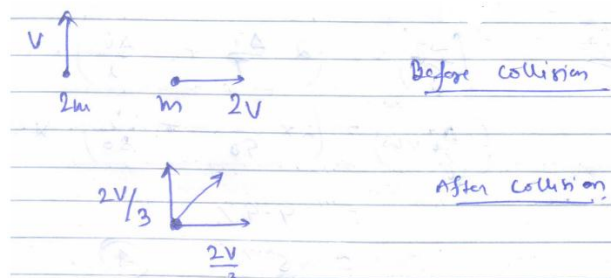 V
2m m 2V Before collision
2V/3 After collision
2V